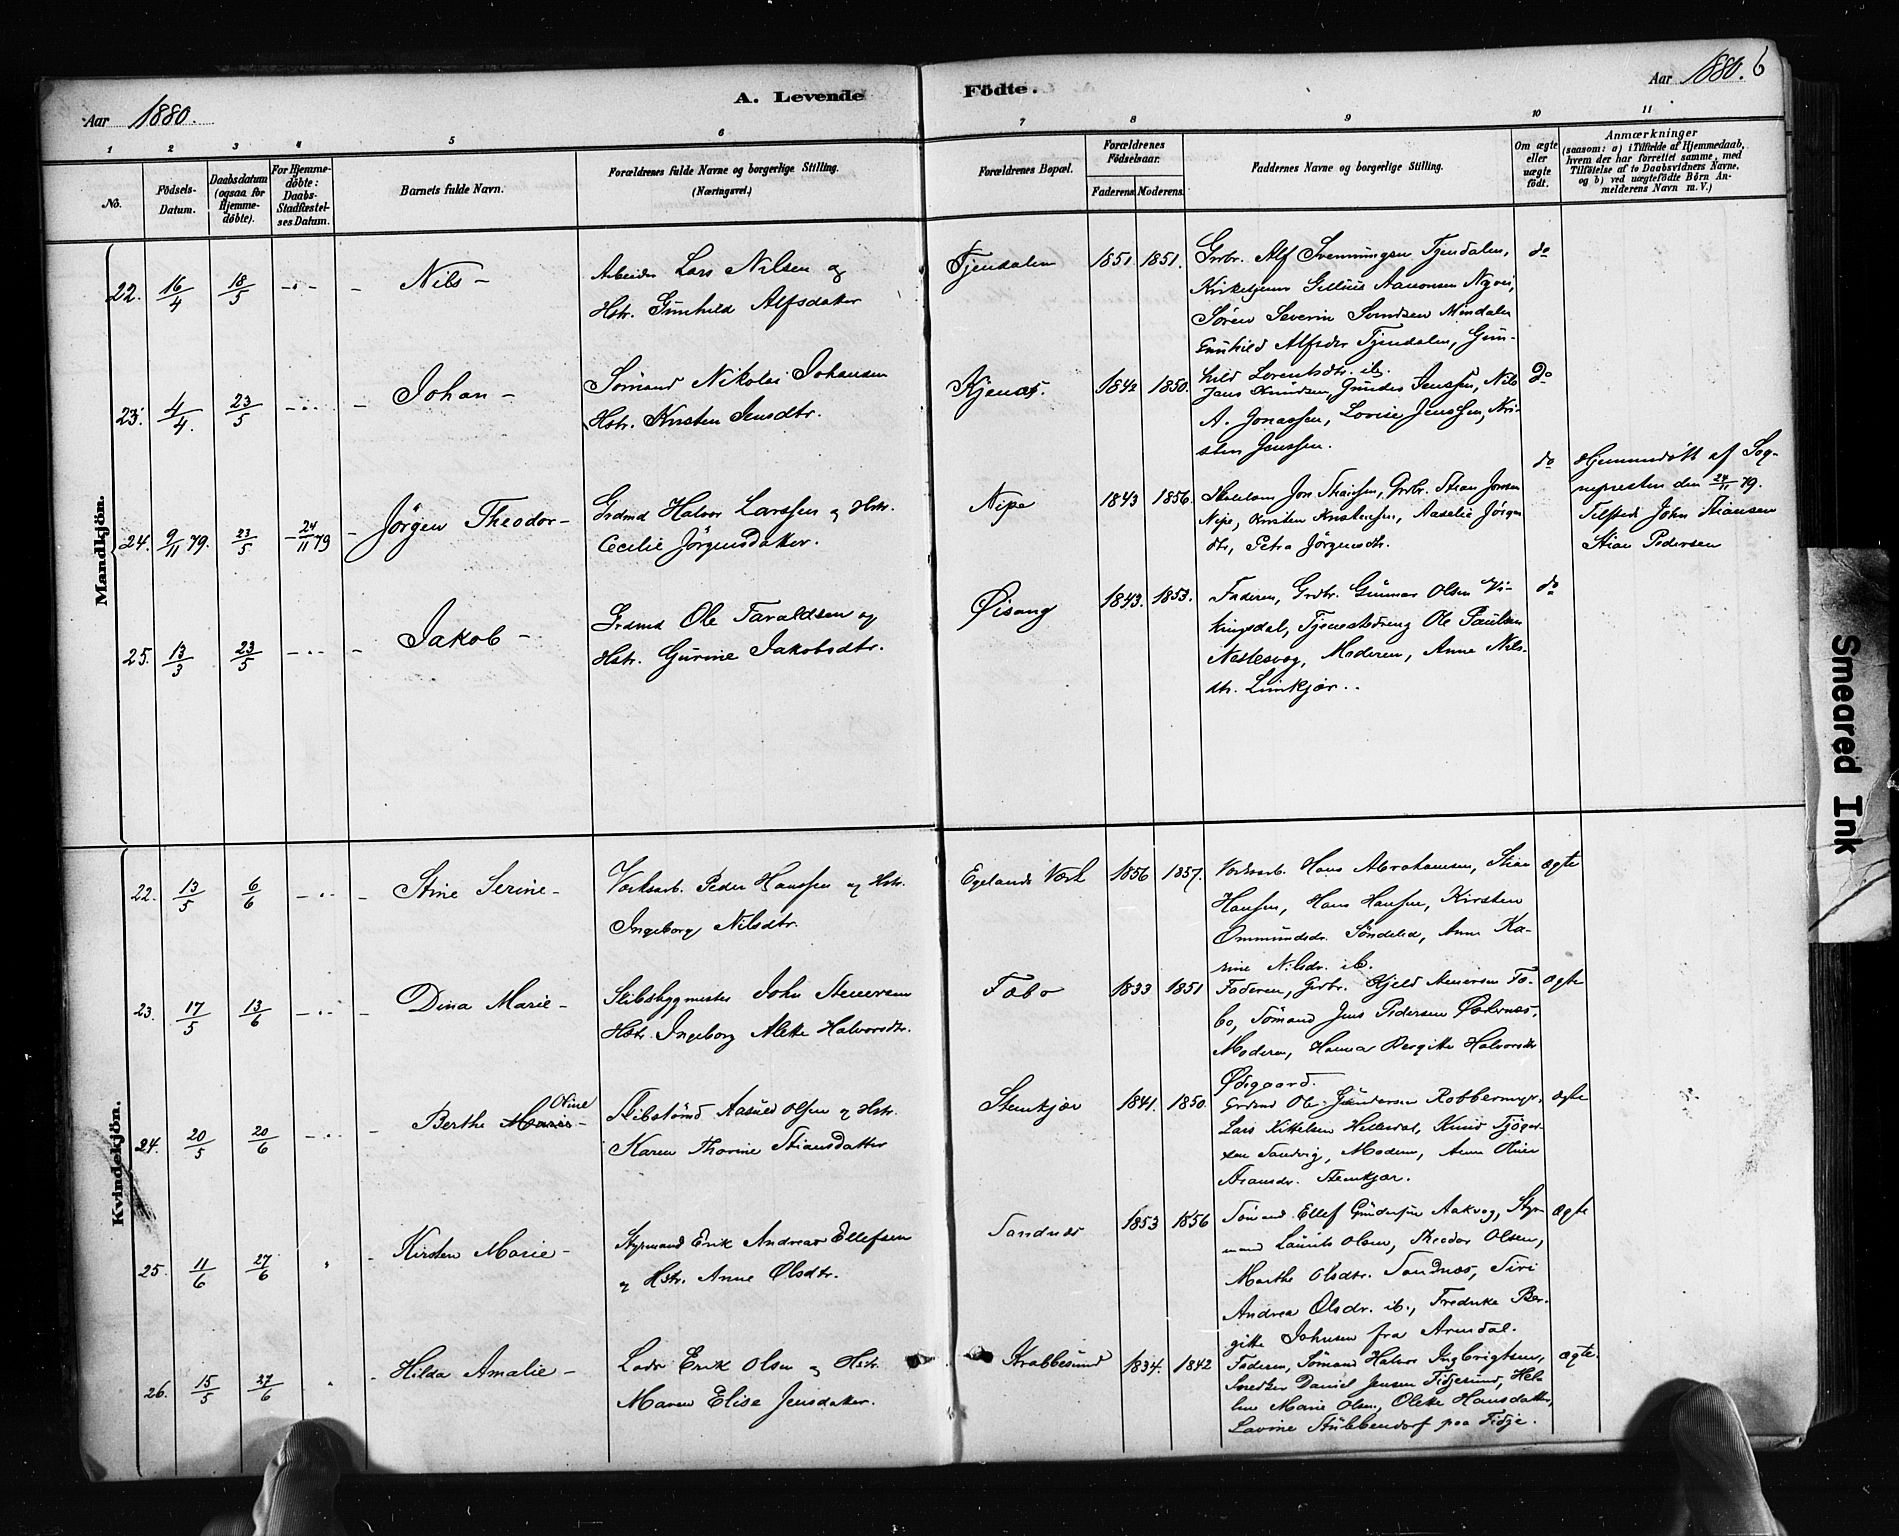 Aar 1880.
A. Levende
Födte.
Aar 1880. 6
1 2 3 4 5 6 7 8 9 10 11
No.
Födsels-
Datum.
Daabsdatum
(ogsaa for
Hjemme-
döbte).
For Hjemme-
döbte:
Daabs-
Stadfæstel-
ses Datum.
Barnets fulde Navn.
Forældrenes fulde Navne og borgerlige Stilling.
(Næringsvei.)
Forældrenes Bopæl.
Forældrenes
Födselsaar.
Faderens. Moderens.
Faddernes Navne og borgerlige Stilling.
Om ægte
eller
uægte
födt.
Anmærkninger
(saasom: a) i Tilfælde af Hjemmedaab,
hvem der har forrettet samme, med
Tilföielse af to Daabsvidners Navne,
og b) ved uægtefödte Börn An-
melderens Navn m. V.)
Mandkjön.
22. 16/4 18/5 Nils -
Arbeider Lars Nilsen og
Hstr. Gunhild Alfsdatter
Fjendalen 1851 1851.
Grbr. Alf Svenningsen Fjendalen,
Kirketjener Gellius Aanonsen Nyvei,
Sören Severin Svendsen Mindalen
Gunhild Alfsdtr Fjendalen, Gun-
hild Lorentsdtr. ib.
do
23. 4/4. 23/5 Johan -
Sömand Nikolai Johansen
Hstr. Kirsten Jensdtr.
Kjenes. 1842 1850.
Jans Knudsen, Gunder Jenssen, Nils
A. Jonassen, Lovise Jenssen, Kri-
sten Jenssen.
do
24. 9/11 79. 23/5 24/11 79 Jörgen Theodor -
Grdmd Halvor Larssen og Hstr.
Cecilie Jörgensdatter.
Nipe 1843 1856.
Jon Thaissen, Grbr. Stian Jonsen
Nipe, Kristen Kristensen, Aaselie Jörgens
dtr, Petra Jörgensdtr.
do
Hjemmedöbt af Sog-
nepresten den 24/11 79.
Tilstede John Stiansen
Stian Pedersen
25. 13/3 23/5 Jakob -
Grdmd Ole Taraldsen og
Hstr. Gurine Jakobsdtr.
Öisang 1843. 1853.
Faderen, Grdbr. Gunnar Olsen Vi-
kingsdal, Tjenestedreng Ole Paulsen
Nestesvog, Moderen, Anne Nils-
dtr. Limkjær.
do
Kvindekjön.
22. 13/5 6/6 Stine Serine -
Værksarb. Peder Hanssen og Hstr.
Ingeborg Nilsdtr.
Egelands Værk 1856 1857.
Værksarb. Hans Abrahamsen, Stian
Hansen, Hans Hansen, Kirsten
Ommundsdr. Söndeled, Anne Ka-
rine Nilsdr. ib.
ægte
23. 17/5 13/6 Dina Marie -
Skibsbygmester John Stenersen
Hstr. Ingeborg Alette Halvorsdtr.
Fosbo 1833 1851
Faderen, Grbr. Kjeld Stenersen Fo-
bo, Sömand Jens Pedersen Östernæs,
Moderen, Hanna Bergitte Halvorsdtr
Ödegaard.
ægte
24. 20/5 20/6 Berthe Marie Oline
Skibstömd Aasuld Olsen og Hstr.
Karen Thorine Stiansdatter
Stenkjær 1841. 1850.
Grdmd Ole Gundersen Robbermyr,
Lars Kittelsen Hellesdal, Knud Tjöger-
sen Sandvig, Moderen, Anne Oline
Aramdr. Stenkjær.
ægte
25. 11/6 27/6 Kirsten Marie -
Styrmand Erik Andreas Ellefsen
og Hstr. Anne Olsdtr.
Sandnæs 1853 1856
Sömand Ellef Gundersen Aakvog, Styr-
mand Laurits Olsen, Theodor Olsen,
Marthe Olsdtr. Sandnæs, Siri
Andrea Olsdr. ib., Fredrike Ber-
gitte Johnsen fra Arendal.
ægte
26. 15/5 27/6 Hilda Amalie -
Lods Erik Olsen og Hstr.
Maren Elise Jensdatter.
Krabbesund 1834. 1842
Faderen, Sömand Halvor Ingbrigtsen,
Snedker Daniel Jensen Fidjesund, Hel-
ene Marie Olsen, Olette Hansdatter,
Lavine Stubbendorf paa Fidje.
ægte.
Smeared Ink